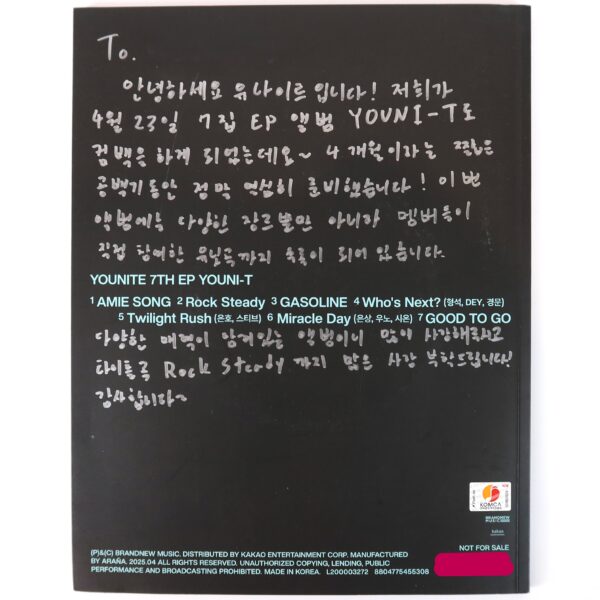 To.
안녕하세요 유나이트 입니다! 저희가
4월 23일 7집 EP 앨범 YOUNI-T로
컴백을 하게 되었는데요~ 4개월이라는 짧은
공백기동안 정말 열심히 준비했습니다! 이번
앨범에는 다양한 장르뿐만 아니라 멤버들이
직접 참여한 유닛곡까지 수록이 되어 있습니다.
YOUNITE 7TH EP YOUNI-T
1 AMIE SONG 2 Rock Steady 3 GASOLINE 4 Who's Next? (형석, DEY, 경문)
5 Twilight Rush (은호, 스티브) 6 Miracle Day (은상, 우노, 시온) 7 GOOD TO GO
다양한 매력이 담겨있는 앨범이니 많이 사랑해주시고
타이틀곡 Rock Steady 까지 많은 사랑 부탁드립니다!
감사합니다~
KOMCA
BRANDNEW
MUSIC
kakao
(P)&(C) BRANDNEW MUSIC. DISTRIBUTED BY KAKAO ENTERTAINMENT CORP. MANUFACTURED
BY ARAÑA. 2025.04 ALL RIGHTS RESERVED. UNAUTHORIZED COPYING, LENDING, PUBLIC
PERFORMANCE AND BROADCASTING PROHIBITED. MADE IN KOREA. L200003272 8804775455308
NOT FOR SALE